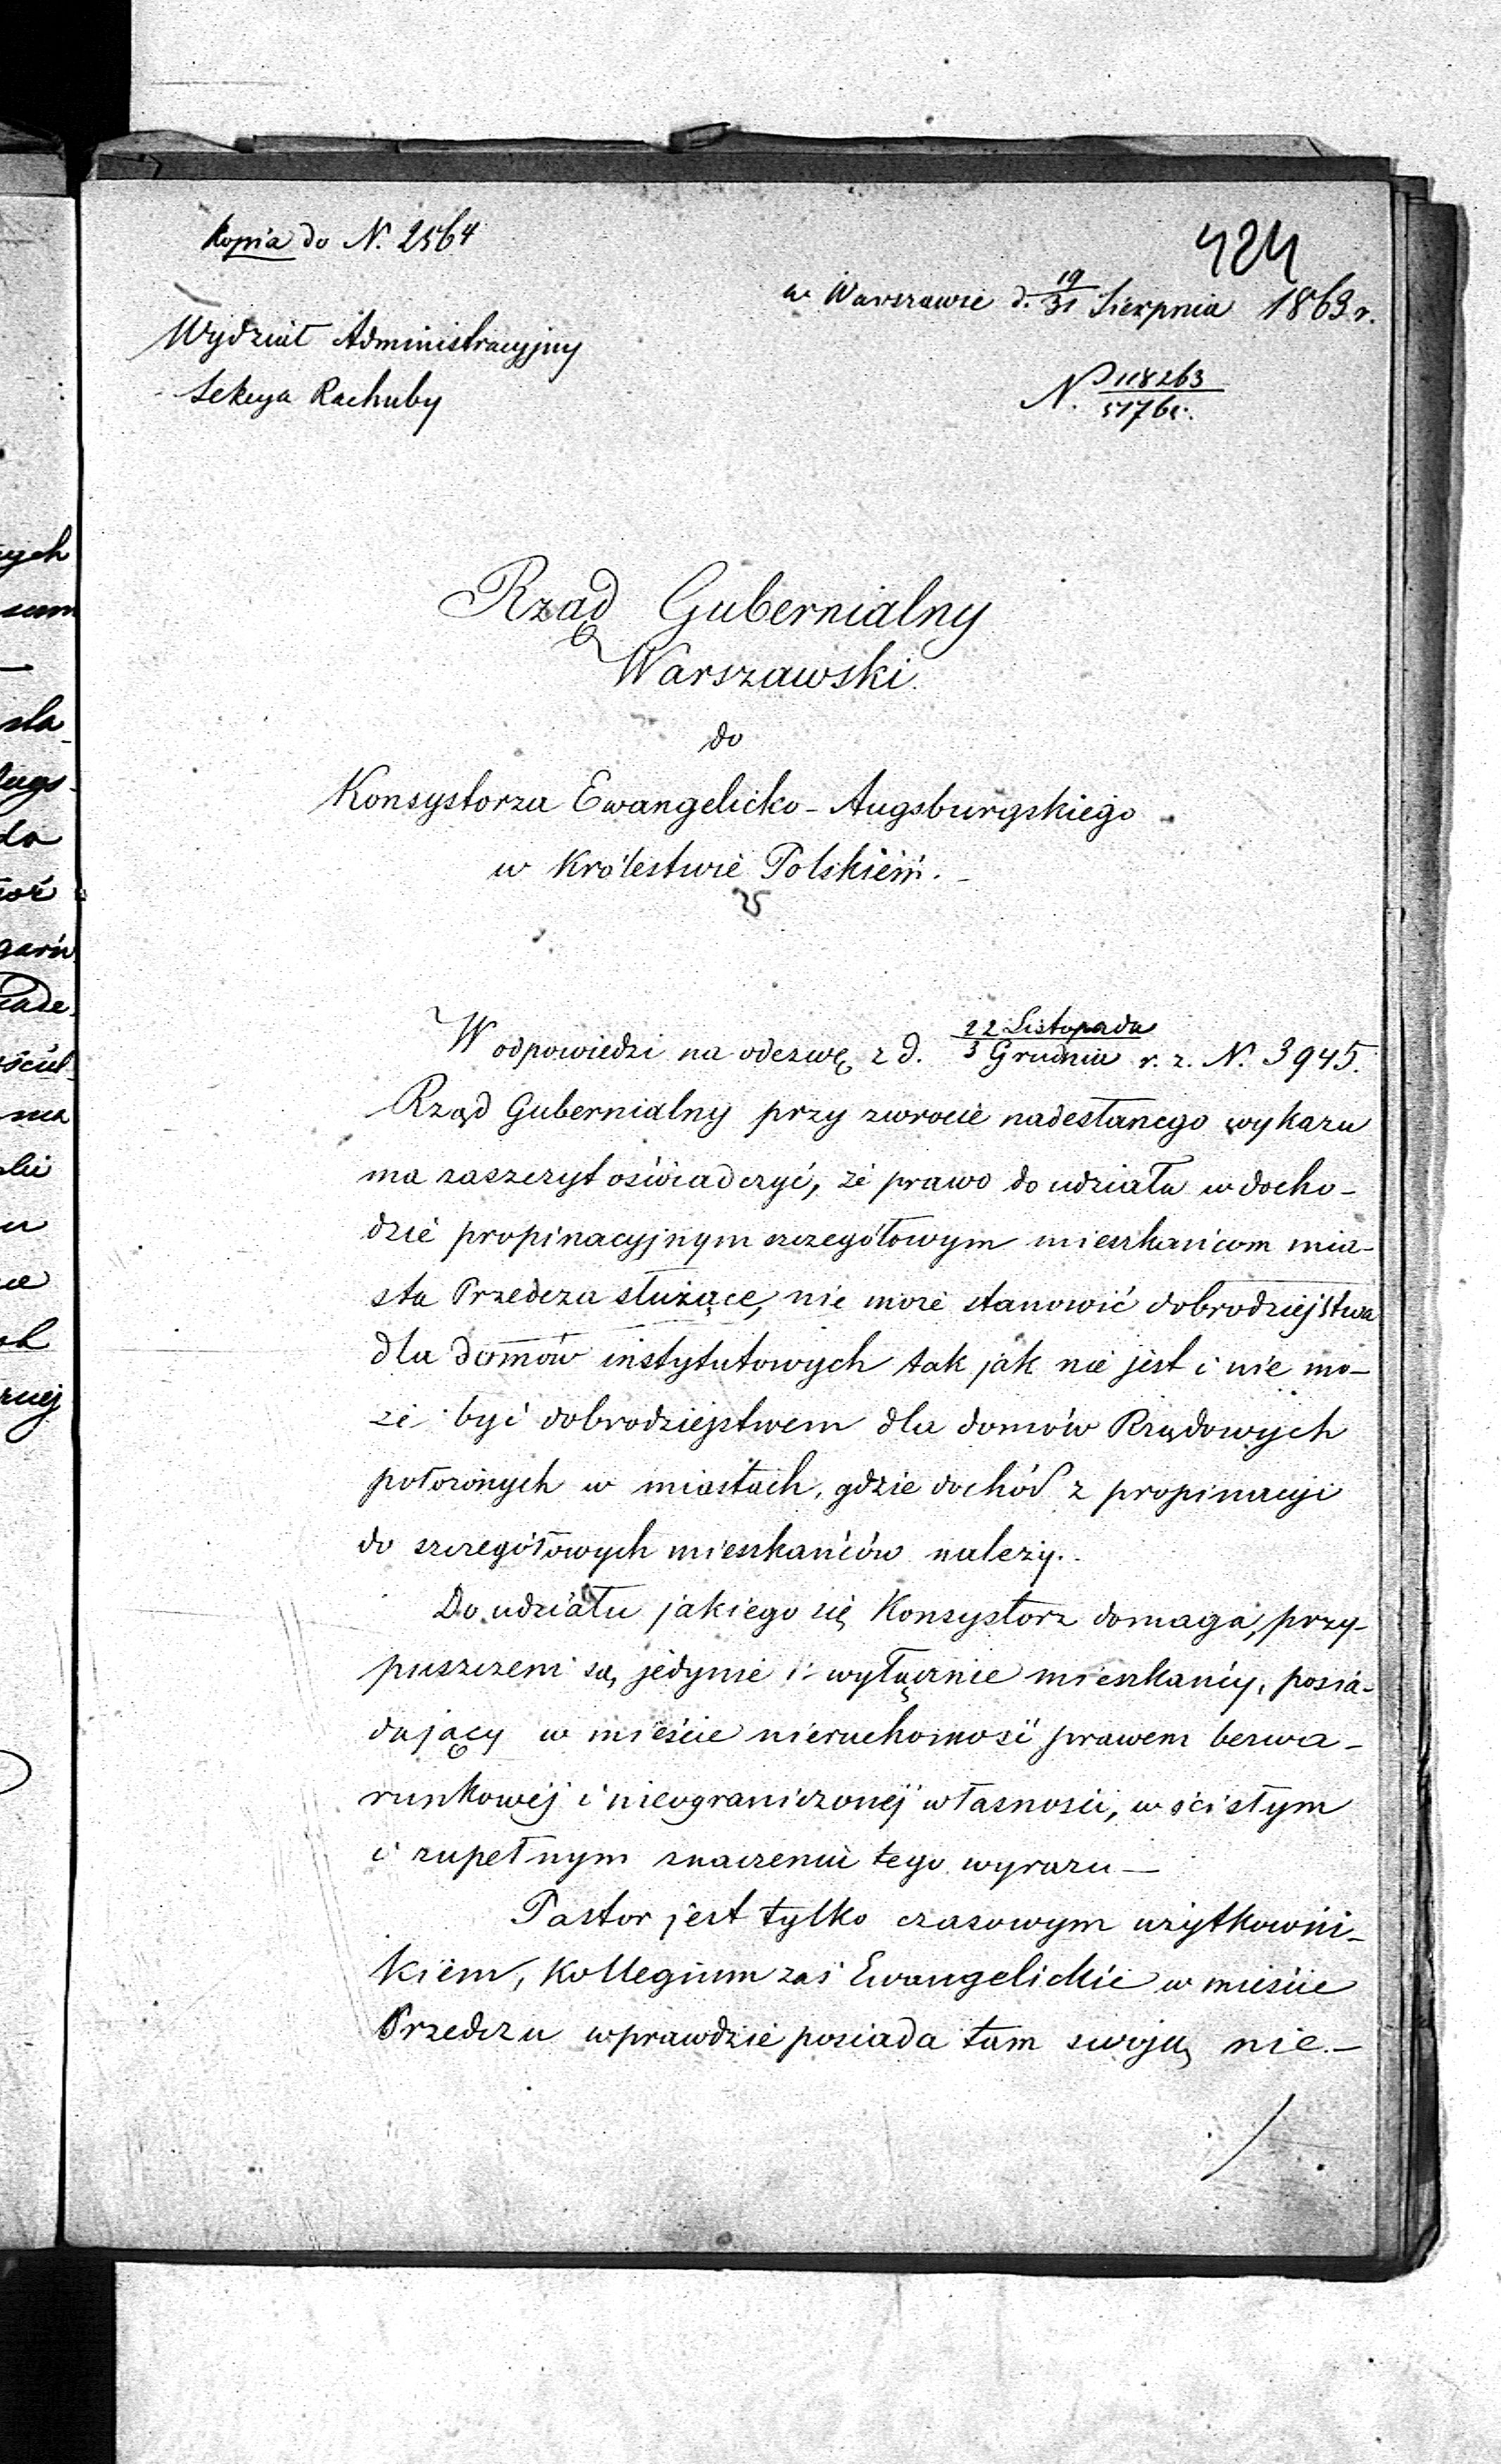 Kopia do N. 2564
424
w Warszawie d. 19/31 Sierpnia 1863 r.
Wydział Administracyjny
Sekcya Rachuby
N. 118263/5176
Rząd Gubernialny
Warszawski
do
Konsystorza Ewangelicko-Augsburgskiego
w Królestwie Polskiém.
W odpowiedzi na odezwę z d. 22 Listopada/3 Grudnia r. z. N. 3945.
Rząd Gubernialny przy zwrocie nadesłanego wykazu
ma zaszczyt oświadczyć, że prawo do udziału w docho-
dzie propinacyjnym szczegółowym mieszkańcom mia-
sta Przedcza służące, nie może stanowić dobrodziejstwa
dla domów instytutowych tak jak nie jest i nie mo-
że być dobrodziejstwem dla domów Rządowych
położonych w miastach, gdzie dochód z propinacyi
do szczegółowych mieszkańców należy.
Do udziału jakiego się Konsystorz domaga, przy-
puszczeni są, jedynie i wyłącznie mieszkańcy, posia-
dający w mieście nieruchomość prawem bezwa-
runkowéj i nieograniczonéj własności, w ścisłym
i zupełnym znaczeniu tego wyrazu —
Pastor jest tylko czasowym użytkowni-
kiem, Kollegium zaś Ewangelickie w mieście
Przedczu wprawdzie posiada tam swoją nie-
ych
sum
sta
ługs-
do
garn
ściel-
ma